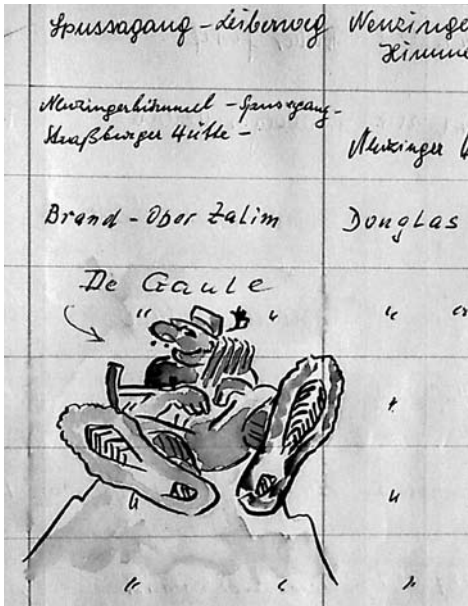 Spussagang - Leiberweg
Neuzinge
Himme
Neuzingerhimmel - Spusagang -
Straßburger Hütte -
Neuzinger
Brand - Ober Zalim
Douglas
De Gaule
" "
" "
"
"
"
" " "